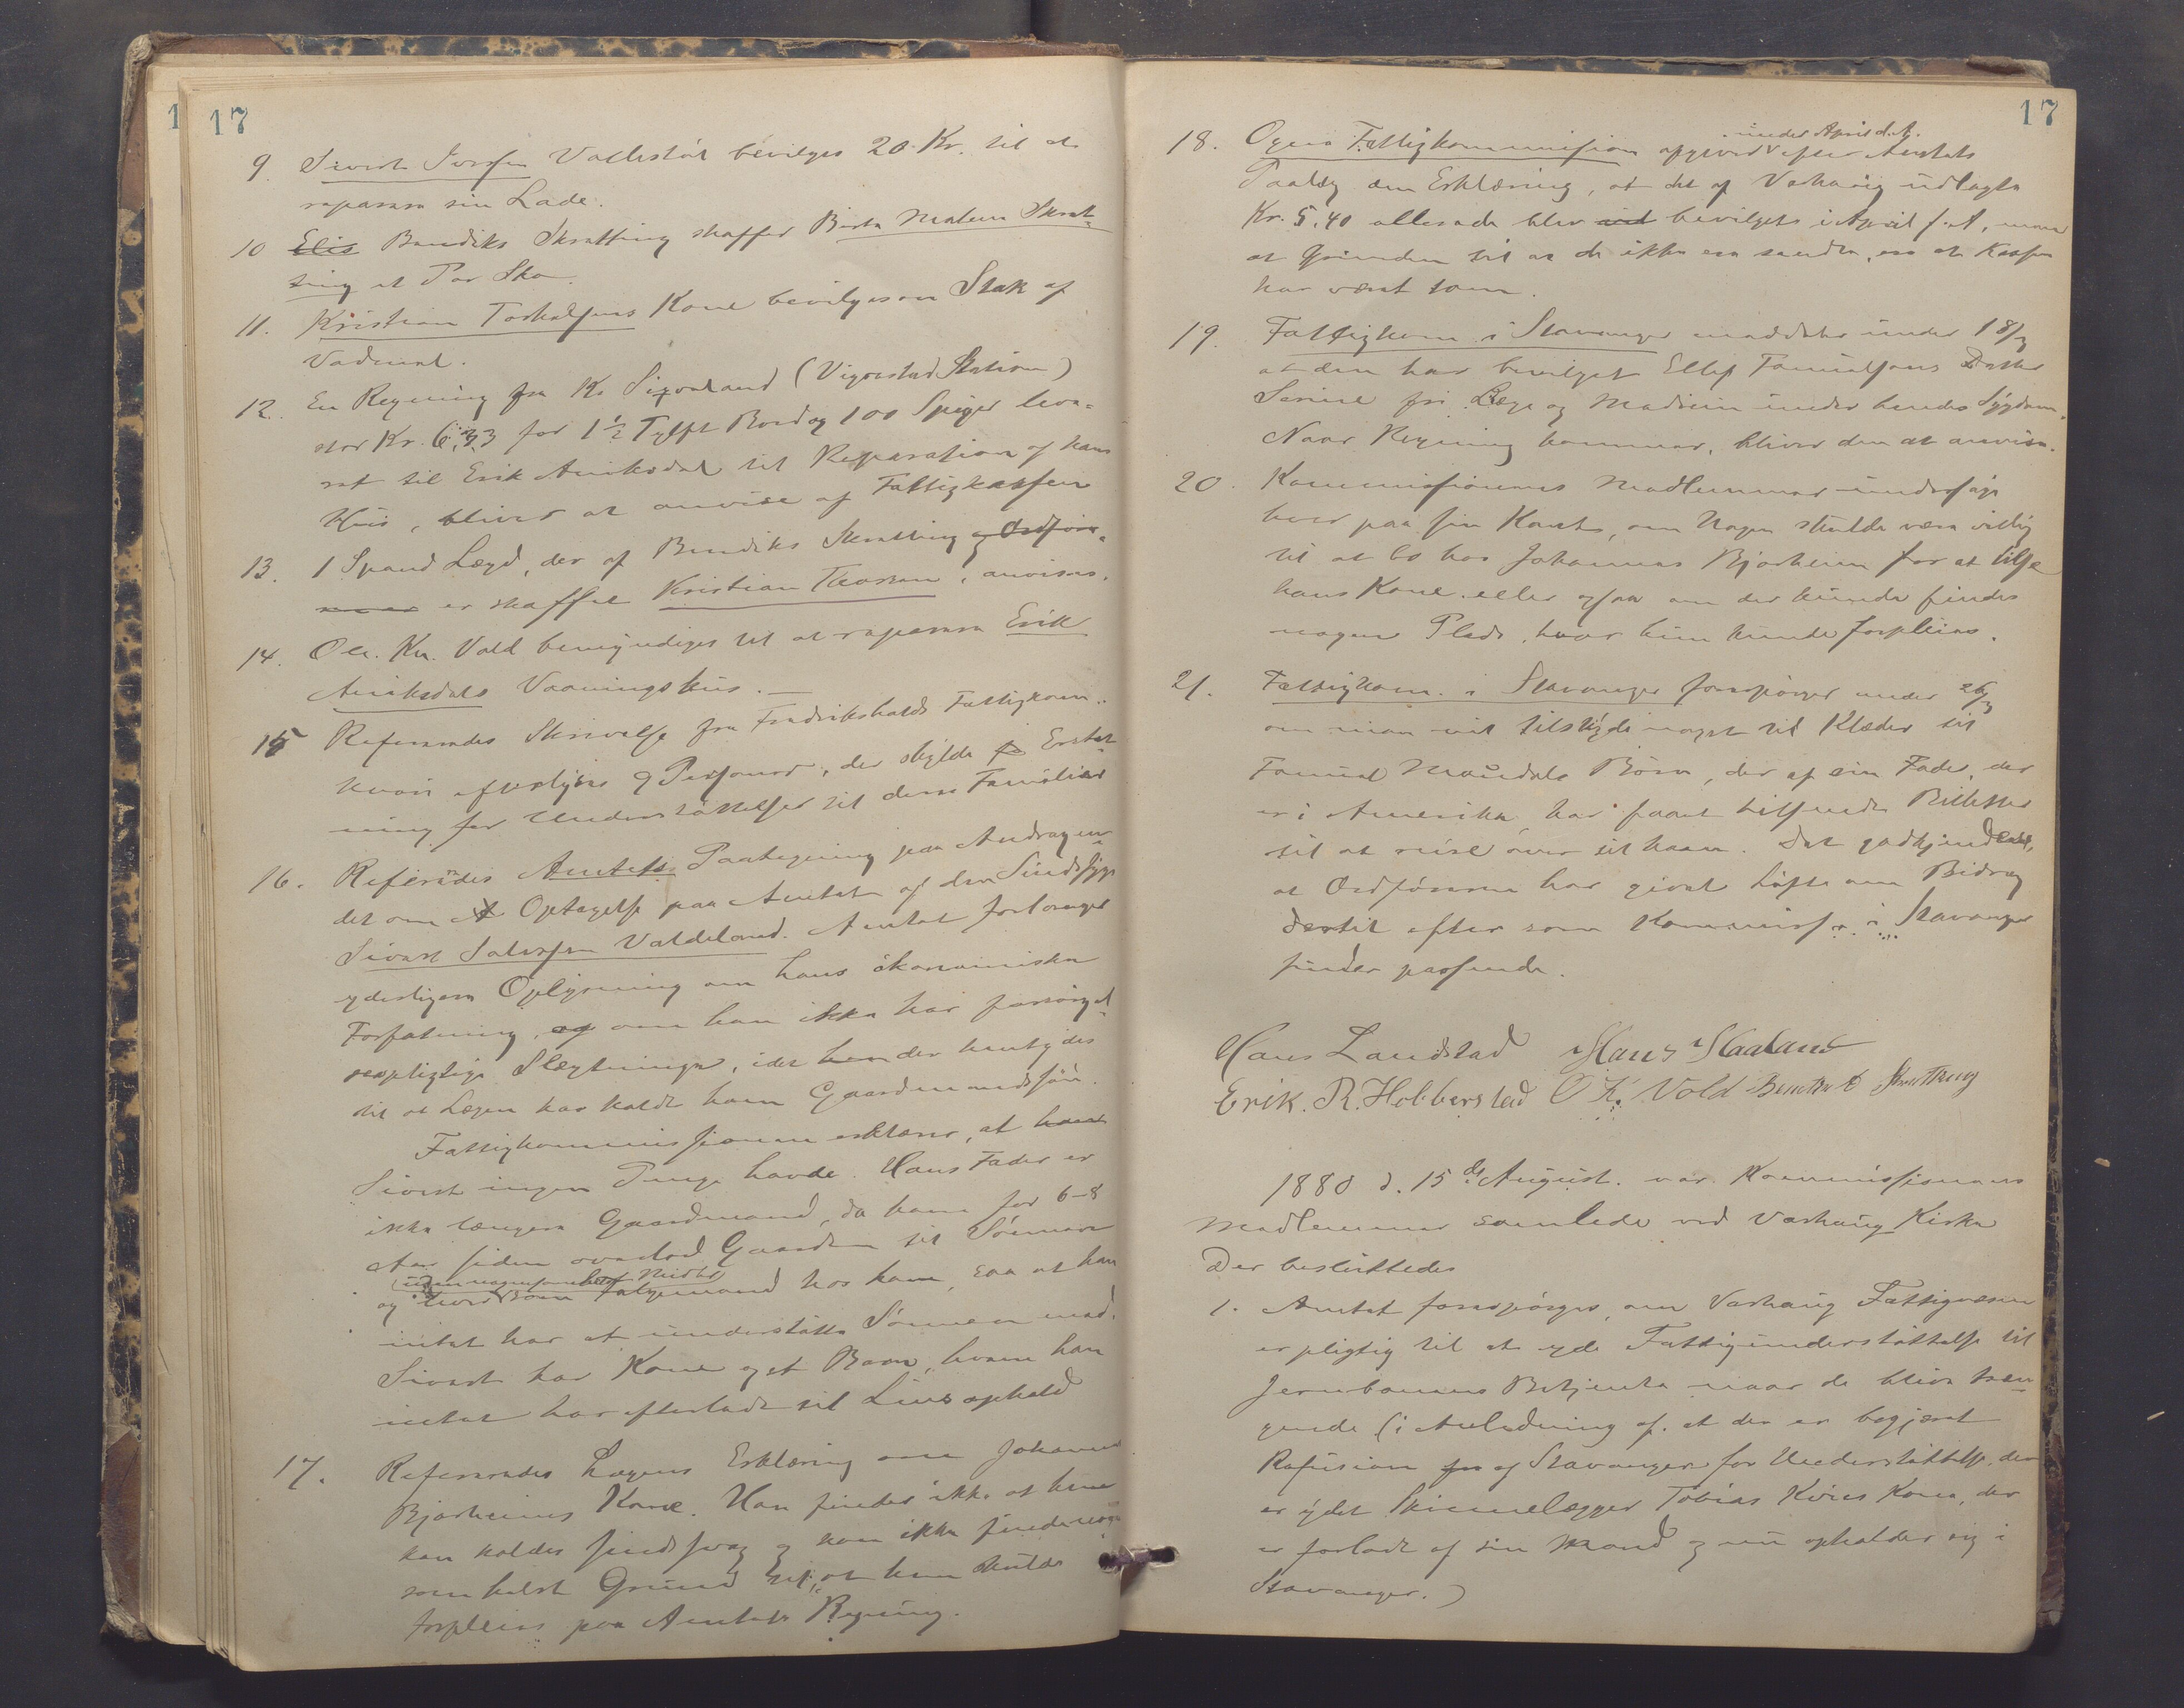 17
9. Sivert Iversen Vallestøl bevilges 20 Kr. til at
reparere sin Lade.
10 Elis Bendiks Skratting skaffer Berte Malene Skrat-
ting et Par Sko.
11. Kristian Torkelsens Kone bevilges en Stak af
Vadmel.
12. En Regning fra K. Sigvaland (Vigrestad Station)
stor Kr. 6,33 for 1½ Tylft Bord og 100 Spiger leve-
ret til Erik Aniksdal til Reparation af hans
Hus, bliver at anvise af Fattigkassen
13. 1 Spand Lægd, der af Bendiks Skratting og Ordfør-
eren er skaffet Kristian Thorsen, anvises.
14. Ole Kn. Vold bemyndiges til at reparere Erik
Aniksdals Vaaningshus. —
15 Refereredes Skrivelse fra Fredrikshalds Fattigkom.
hvori efterlyses 9 Personer, der skylde for Erstat-
ning for Understøttelser til deres Familier
16. Refereredes Amtets Paategning paa Andragen-
det om At Optagelse paa Amtet af den Sindssyge
Sivert Salvesen Valdeland. Amtet forlanger
yderligere Oplysning om hans økonomiske
Forfatning, og om han ikke har forsørgel-
sespligtige Slægtninge, idet han der hentydes
til at Lægen har kaldt ham Gaardmandssøn.
Fattigkommissionen erklærer, at hans
Sivert ingen Penge havde. Hans Fader er
ikke længere Gaardmand, da han for 6-8
Aar siden overlod Gaarden til Sønnen
(uden nogensomhelst Midler)
og lever som Følgemand hos ham, saa at han
intet har at understøtte Sønnen med.
Sivert har Kone og et Barn, hvem han
intet har efterladt til Livsophold
17. Refereredes Lægens Erklæring om Johannes
Bjorheims Kone. Han finder ikke at hun
kan kaldes sindssvag og kan ikke finde nogen
som helst Grund til, at hun skulde
forpleies paa Amtets Regning.
17
18. Ogens Fattigkommission afgiver under April d. A. efter Amtets
Paalæg den Erklæring, at det af Varhaug udlagte
Kr. 5,40 allerede blev ved bevilget i April f. A, men
at Grunden til at de ikke ere sendte, er at Kassen
har været tom.
19. Fattigkom. i Stavanger meddeler under 18/3
at den har bevilget Ellef Samuelsens Datter
Serine fri Læge og Medicin under hendes Sygdom.
Naar Regning kommer, bliver den at anvise.
20. Kommissionens Medlemmer undersøge
hver paa sin Kant, om Nogen skulde være villig
til at bo hos Johannes Bjorheim for at tilse
hans Kone eller ogsaa om der kunde findes
nogen Plads, hvor hun kunde forpleies.
21. Fattigkom. i Stavanger forespørger under 26/3
om man vil tilstyde noget til Klæder til
Samuel Maudals Børn, der af sin Fader, der
er i Amerika har faaet tilsendt Billetter
til at reise over til ham. Det godkjendtes,
at Ordføreren har givet Løfte om Bidrag
dertil efter som Kommiss. i Stavanger
finder passende.
Hans Landstad Hans Haaland
Erik. R. Hobberstad O K. Vold Bendik B Skratting
1880 d. 15de August. var Kommissionens
Medlemmer samlede ved Varhaug Kirke
Der besluttedes
1. Amtet forespørges, om Varhaug Fattigvæsen
er pligtig til at yde Fattigunderstøttelse til
Jernbanens Betjente naar de blive træn-
gende (i Anledning af. at der er begjæret
Refusion fra af Stavanger for Understøttelse, der
er ydet Skinnelægger Tobias Kvies Kone, der
er forladt af sin Mand og nu opholder sig i
Stavanger.)